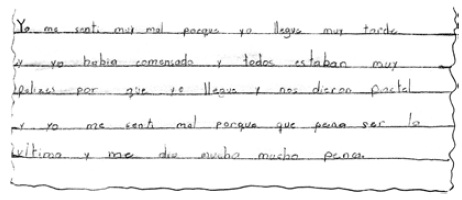 Yo me senti muy mal porque yo llegue muy tarde
y yo habia comensado y todos estaban muy
felises por que yo llegue y nos dieron pactel
y yo me senti mal porque que pena ser la
ultima y me dio mucho mucho pena.